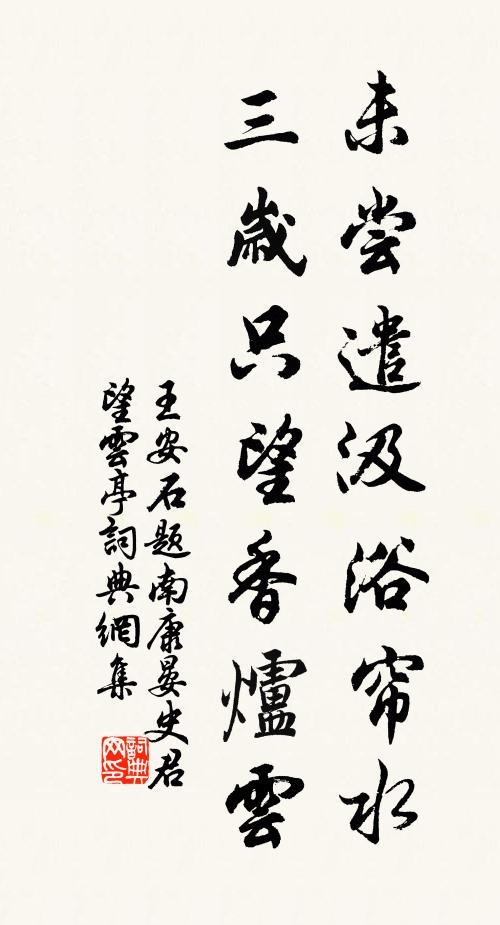 未尝遣汲浴帘水
三歲只望香爐雲
王安石題南康晏史君
望雲亭詞典網集
詞典網印